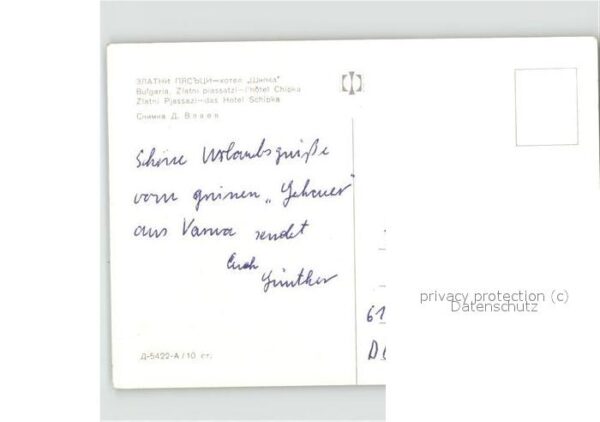 ЗЛАТНИ ПЯСЪЦИ—хотел „Шипка"
Bulgaria, Zlatni piassatzi—l'hôtel Chipka
Zlatni Pjassazi—das Hotel Schipka
Снимка Д. Влаев
Schöne Urlaubsgrüße
vom grünen „Geheuer"
aus Varna sendet
Euch
Günther
61
D
Д-5422-А/10 ст.
privacy protection (c)
Datenschutz